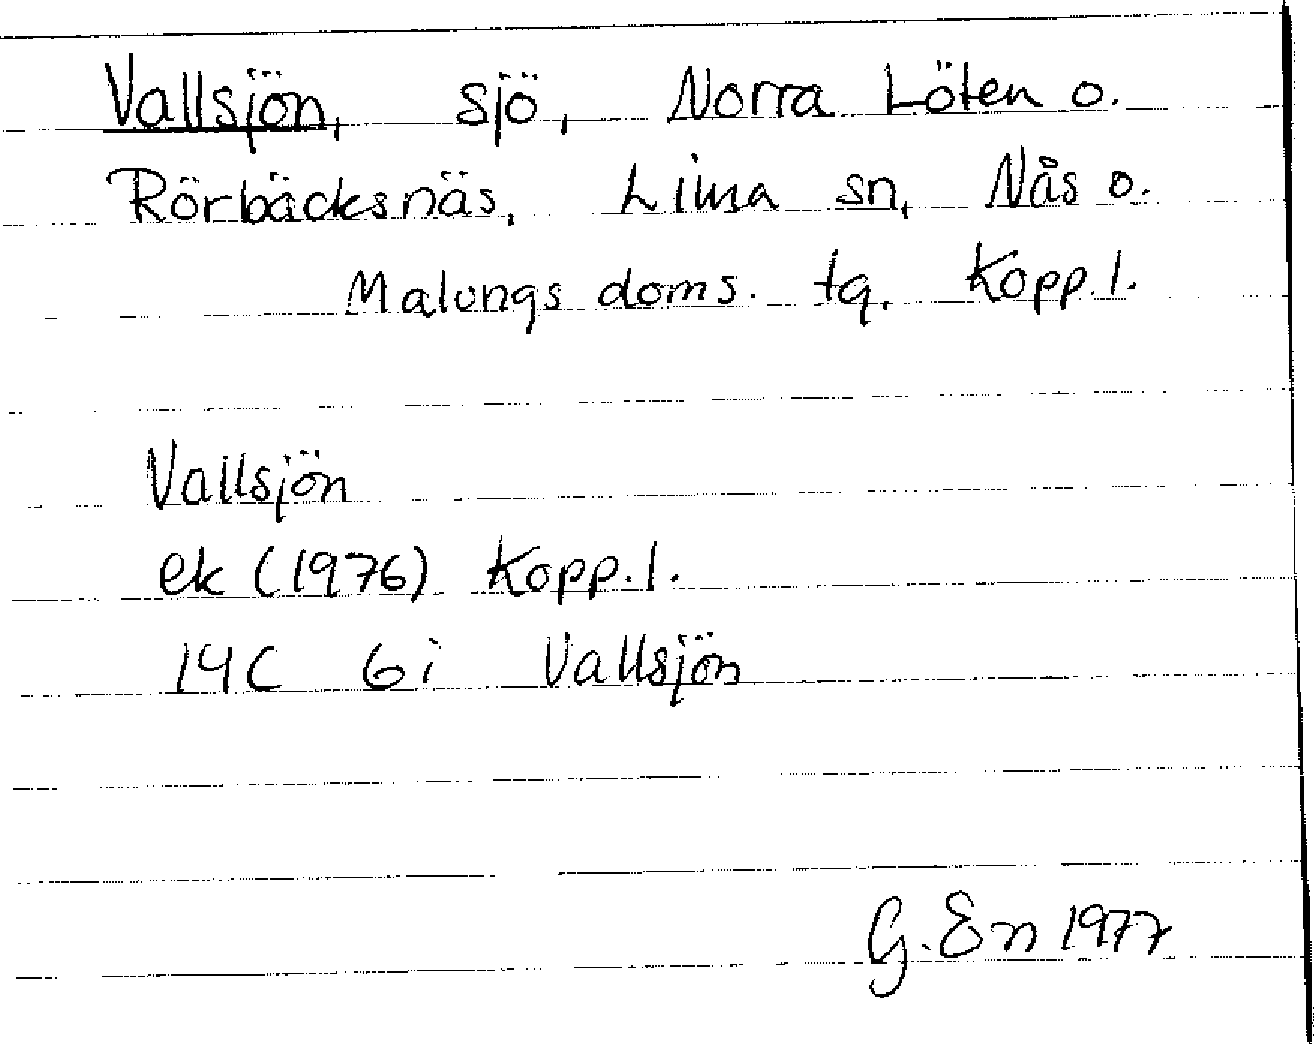 Vallsjön, sjö, Norra Löten o.
Rörbäcksnäs, Lima sn, Nås o.
Malungs doms. tg. Kopp. l.
Vallsjön
ek (1976) Kopp. l.
14C 6i Vallsjön
G. En 1977